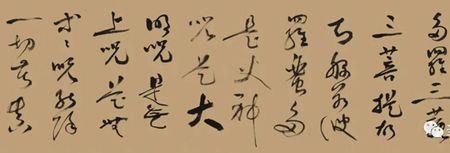 多羅三藐
三菩提故
知般若波
羅蜜多
是大神
咒是大
明咒是無
上咒是無
等等咒能除
一切苦真